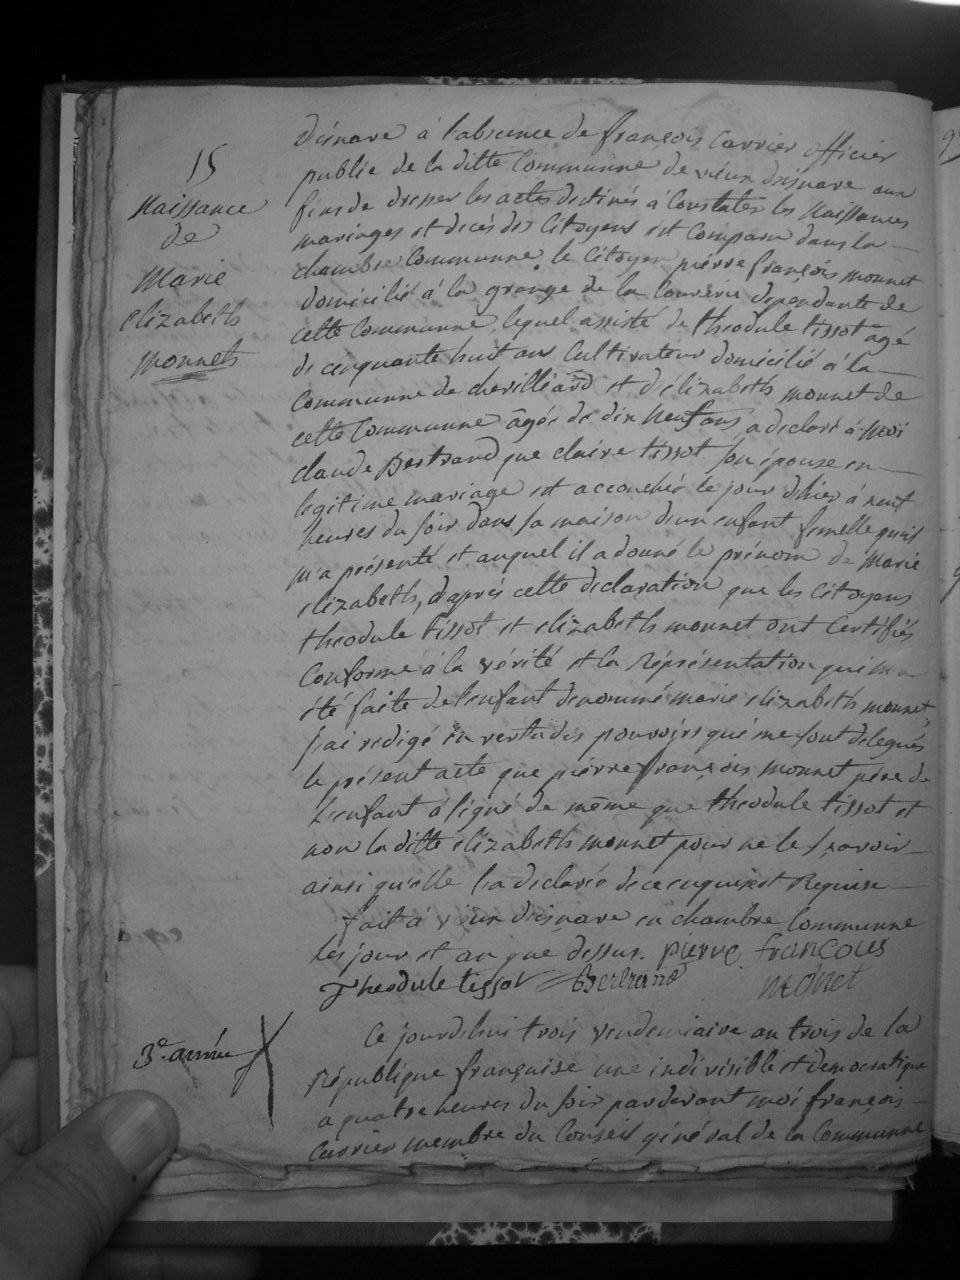 15
Naissance
de
Marie
Elizabeth
monnet
disnave à l'absence de françois Carrier officier
publie de la ditte Communne de vieux disnave aux
fins de dresser les actes destinés à Constater les Naissances
mariages et décès des Citoyens est Comparu dans la
chambre Communne, le Citoyen pierre françois monnet
domicilié à la grange de la Couverie dependante de
cette Communne, lequel assisté de theodule tissot agé
de cinquante huit ans Cultivateur domicilié à la
Communne de chevilliard et d'élizabeth monnet de
cette Communne âgée de dix neuf ans, a declaré à moi
claude Bertrand que claire tissot son épouze en
legitime mariage est accouchée le jour d'hier à neuf
heures du soir dans sa maison d'un enfant femelle qu'il
m'a présenté et auquel il a donné le prénom de Marie
elizabeth, d'après cette declaration que les Citoyens
theodule tissot et elizabeth monnet ont Certifiés
Conforme à la vérité et la Réprésentation qui m'a
été faite de l'enfant denommé marie elizabeth monnet,
j'ai redigé en vertu des pouvoirs qui me sont delegués
le présent acte que pierre françois monnet père de
L'enfant à signé de même que theodule tissot et
non la ditte elizabeth monnet pour ne le sçavoir
ainsi qu'elle l'a declarée de ce enquise et Requise
fait à vieux disnave en chambre Communne
les jour et an que dessus. pierre françoies
Theodule tissot Bertrand monet
3e. année
Ce jourd'hui trois vendemiaire an trois de la
République françoise une indivisible et democratique
a quatre heures du soir pardevant moi françois
Carrier membre du Conseil général de la Communne